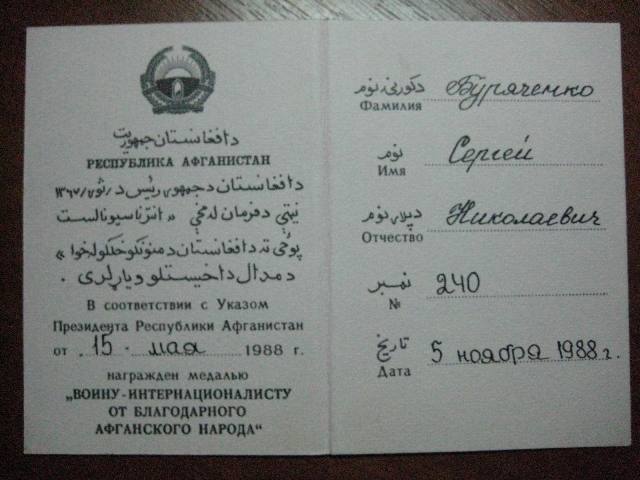 دافغانستان جمهوريت
РЕСПУБЛИКА АФГАНИСТАН
دافغانستان دجمهوری رئیس د
نیتې دفرمان له مخې « انترناسیونالست
« پوځي ته دافغانستان دمننوکوخلکولخوا
دمدال داخیستلو وړ
В соответствии с Указом
Президента Республики Афганистан
от 15 мая 1988 г.
награжден медалью
„ВОИНУ-ИНТЕРНАЦИОНАЛИСТУ
ОТ БЛАГОДАРНОГО
АФГАНСКОГО НАРОДА“
دکورنی نوم Буряченко
Фамилия
نوم Сергей
Имя
دپلار نوم Николаевич
Отчество
نمبر 240
№
تاریخ 5 ноября 1988 г.
Дата